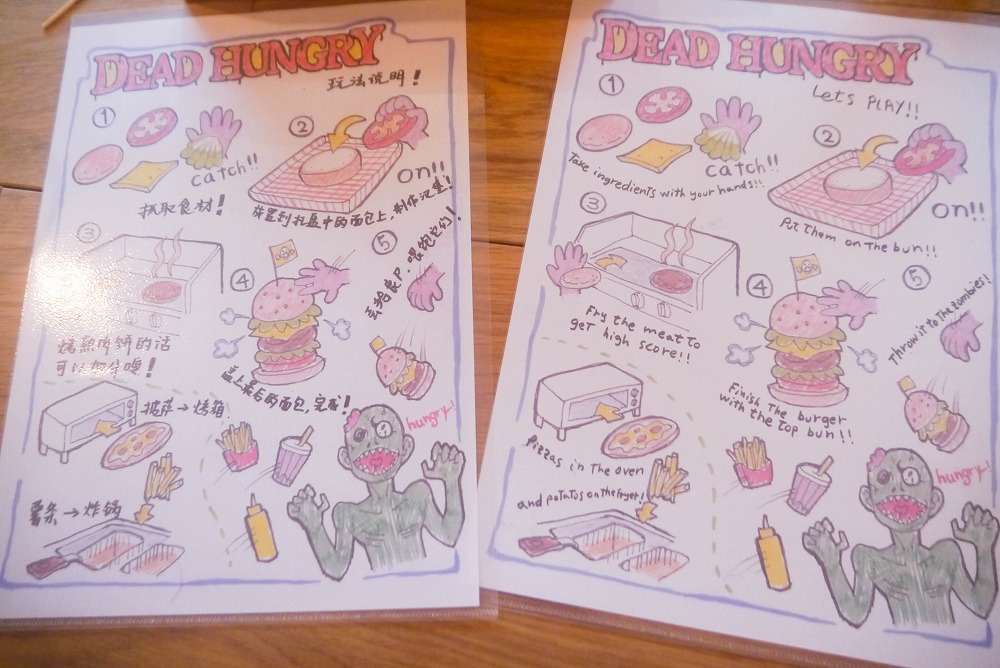 DEAD HUNGRY
玩法说明!
①
catch!!
抓取食材!
②
on!!
放置到托盘中的面包上,制作汉堡!
③
烤熟肉饼的话
可以加分噢!
④
盖上最后的面包,完成!
⑤
丢给丧尸,喂饱它们!
披萨→烤箱
薯条→炸锅
hungry!
DEAD HUNGRY
Let's PLAY!!
①
catch!!
Take ingredients with your hands!!
②
on!!
Put them on the bun!!
③
Fry the meat to
get high score!!
④
Finish The burger
with the top bun!!
⑤
Throw it to The zombies!
Pizzas in The oven
and potatos on the fryer!
hungry!